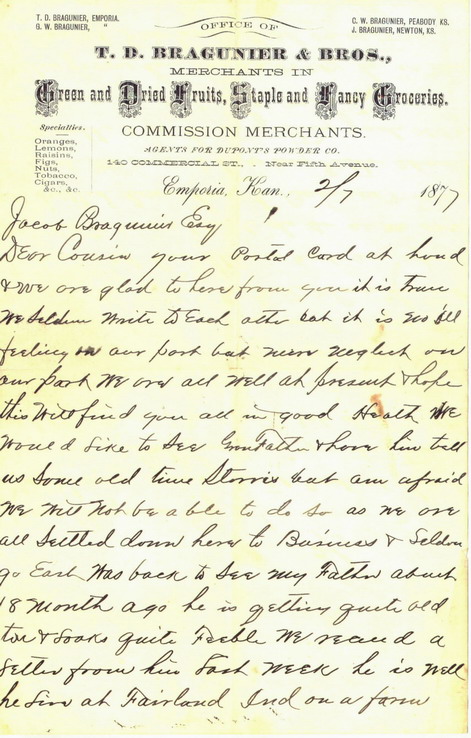 T. D. BRAGUNIER, EMPORIA.
G. W. BRAGUNIER, "
C. W. BRAGUNIER, PEABODY KS.
J. BRAGUNIER, NEWTON, KS.
OFFICE OF
T. D. BRAGUNIER & BROS.,
MERCHANTS IN
Green and Dried Fruits, Staple and Fancy Groceries.
Specialties.
Oranges,
Lemons,
Raisins,
Figs,
Nuts,
Tobacco,
Cigars,
&c., &c.
COMMISSION MERCHANTS.
AGENTS FOR DUPONT'S POWDER CO.
140 COMMERCIAL ST., . Near Fifth Avenue.
Emporia, Kan., 2/7 1877
Jacob Bragunier Esq
Dear Cousin your Postal Card at hand
& We are glad to here from you it is true
We Seldom Write to Each other but it is no ill
feeling on our part but mere neglect on
our part We are all well at present & hope
this Will find you all in good Health We
Would like to See Father & have him tell
us Some old time Storris but am afraid
We Will Not be able to do so as we are
all Settled down here to Business & Seldom
go East Was back to See my Father about
18 Month ago he is getting quite old
too & looks quite Feeble We recevd a
Letter from him Last Week he is Well
he Livs at Fairland Ind on a farm